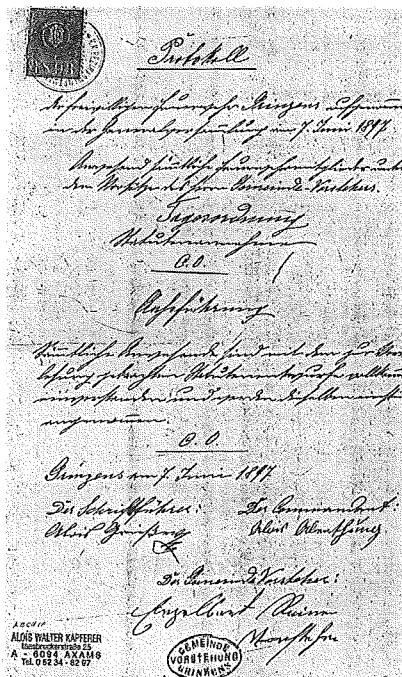 Protokoll
der freiwilligen Feuerwehr Grinzens aufgenommen
in der Generalversammlung am 7. Juni 1897
Anwesend sämtliche Feuerwehrmitglieder unter
dem Vorsitze des Herrn Gemeinde-Vorstehers.
Tagesordnung
Statutenannahme
C.O.
Ausführung
Sämtliche Anwesende sind mit dem zur
Statutenentwurfe vollkommen
einverstanden und werden dieselben
angenommen.
C.O.
Grinzens am 7. Juni 1897
Der Schriftführer: Der Commandant:
Alois Alois Abenthung
Der Gemeinde Vorsteher:
Engelbert
Vorsteher
ALOIS WALTER KAPFERER
Innsbruckerstraße 25
A - 6094 AXAMS
Tel. 0 52 34 - 82 97
GEMEINDE
VORSTEHUNG
GRINZENS